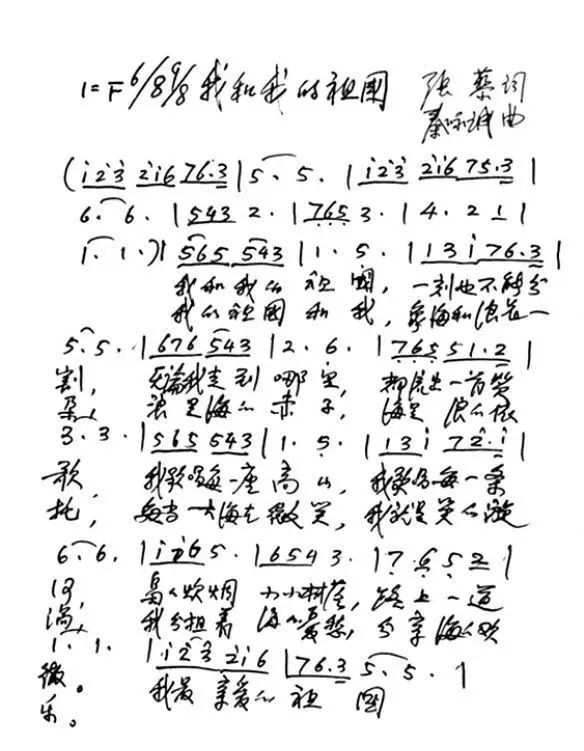 1=F 6/8 9/8 我和我的祖國 张藜词
秦咏诚曲
(i23 2i6 76.3 | 5. 5. | i23 2i6 75.3 |
6. 6. | 543 2. | 765 3. | 4. 2 1 |
1. 1.) | 565 543 | 1. 5. | 1 3 i 76.3 |
我和我的祖國，一刻也不能分
我的祖國和我，象海和浪花一
5. 5. | 676 543 | 2. 6. | 765 51.2 |
割，无論我走到哪里，都流出一首赞
朵，浪是海的赤子，海是浪的依
3. 3. | 565 543 | 1. 5. | 13i 72.i |
歌，我歌唱每一座高山，我歌唱每一条
托，每当大海在微笑，我就是笑的漩
6. 6. | i765. | 6543. | 7. 6 5 2 |
河，袅袅炊烟 小小村落，路上一道
涡，我分担着海的忧愁，分享海的欢
1. 1. | i23 2i6 | 76.3 5. 5. |
辙。我最亲爱的祖國
乐。